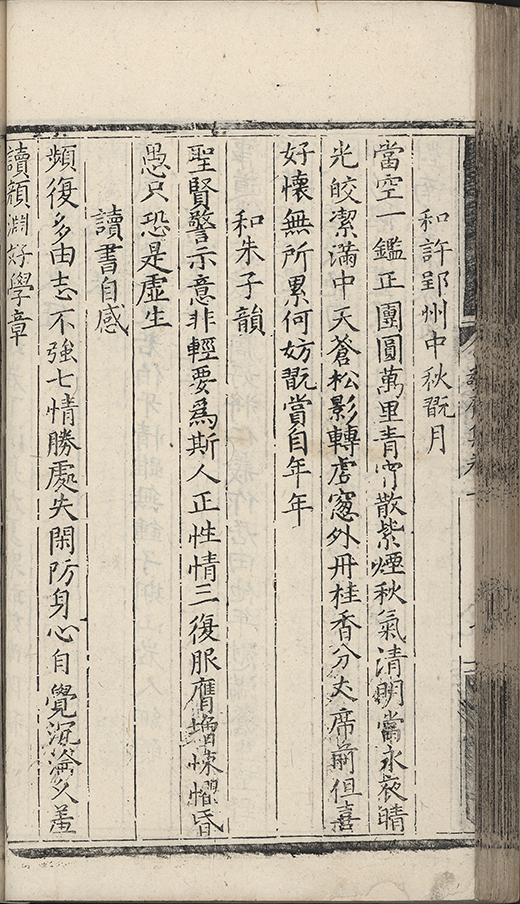 和許郢州中秋翫月
當空一鑑正團圓萬里青冥散紫煙秋氣清明當永夜晴
光皎潔滿中天蒼松影轉虛窓外丹桂香分丈席前但喜
好懷無所累何妨翫賞自年年
和朱子韻
聖賢警示意非輕要爲斯人正性情三復服膺增悚懼昏
愚只恐是虛生
讀書自感
頻復多由志不強七情勝處失閑防身心自覺沉淪久羞
讀顏淵好學章